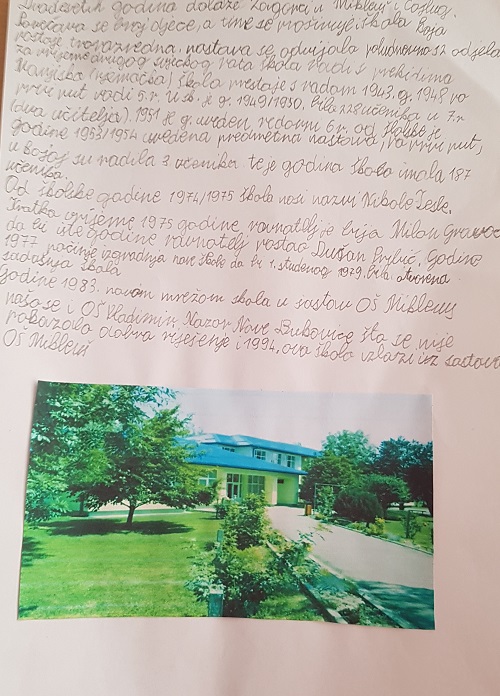 Dvadesetih godina dolaze Zagorci u Mikleuš i Čojlug.
Povećava se broj djece, a time se proširuje škola koja
postaje trorazredna, nastava se odvijala poludnevno s 2 odjela
za vrijeme drugog svjetskog rata škola radi s prekidima
Manjiska (njemačka) škola prestaje s radom 1943. g. 1948 po
prvi put radi 5. r. U šk. je g. 1949/1950. bila 228 učenika u 7. r
(dva učitelja), 1951 je g. uveden redovni 6 r. od školske je
godine 1953/1954 uvedena predmetna nastava, po prvi put,
u kojoj su radila 3 učenika te je godina škola imala 187
učenika.
Od školske godine 1974/1975 škola nosi naziv Nikole Tesle.
Kratko vrijeme 1975 godine, ravnatelj je bio Milan
da bi iste godine ravnatelj postao Dušan godine
1977 počinje izgradnja nove škole da bi 1. studenog 1979, bila otvorena
sadašnja škola
Godine 1983. novom mrežom škola u sastav OŠ Mikleuš
nalazi se i OŠ Vladimir Nazor Nove Bukovice što se nije
pokazalo dobro rješenje i 1994. ova škola izlazi iz sastava
OŠ Mikleuš